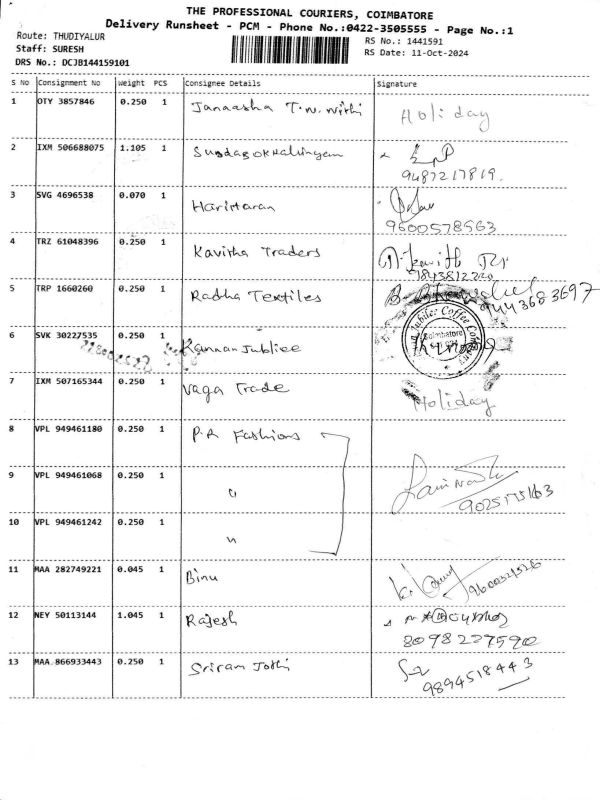 THE PROFESSIONAL COURIERS, COIMBATORE
Delivery Runsheet - PCM - Phone No.:0422-3505555 - Page No.:1
Route: THUDIYALUR
Staff: SURESH
DRS No.: DCJB144159101
RS No.: 1441591
RS Date: 11-Oct-2024
S No Consignment No Weight PCS Consignee Details Signature
1 OTY 3857846 0.250 1 Janaasha T.N. Nithi Holiday
2 IXM 506688075 1.105 1
9487217819.
3 SVG 4696538 0.070 1 Hariharan
9600578563
4 TRZ 61048396 0.250 1 Kavitha Traders
9843812220
5 TRP 1660260 0.250 1 Radha Textiles
9443683697
6 SVK 30227535 0.250 1 Kannan Jubliee
Jubilee Coffee Company
Coimbatore
7 IXM 507165344 0.250 1 Vaga Trade Holiday
8 VPL 949461180 0.250 1 P.R Fashions
9 VPL 949461068 0.250 1 "
10 VPL 949461242 0.250 1 "
11 MAA 282749221 0.045 1 Binu
12 NEY 50113144 1.045 1 Rajesh
8098227590
13 MAA 866933443 0.250 1 Sriram Jothi
9894518443